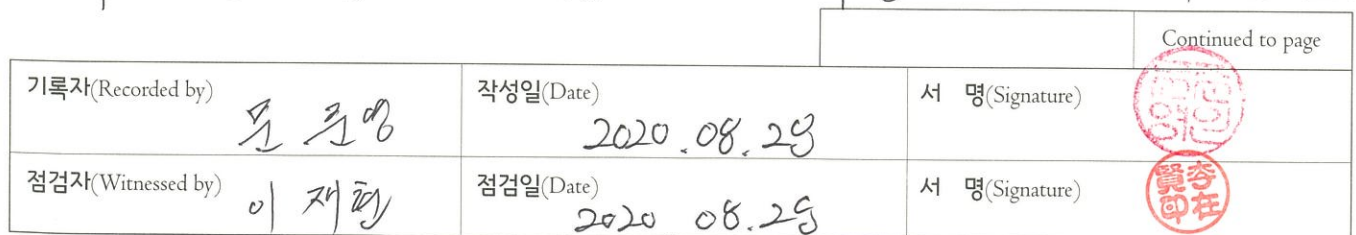 Continued to page
기록자(Recorded by) 문준영 작성일(Date) 2020.08.28 서 명(Signature)
점검자(Witnessed by) 이재현 점검일(Date) 2020 08.28 서 명(Signature) 李在賢印